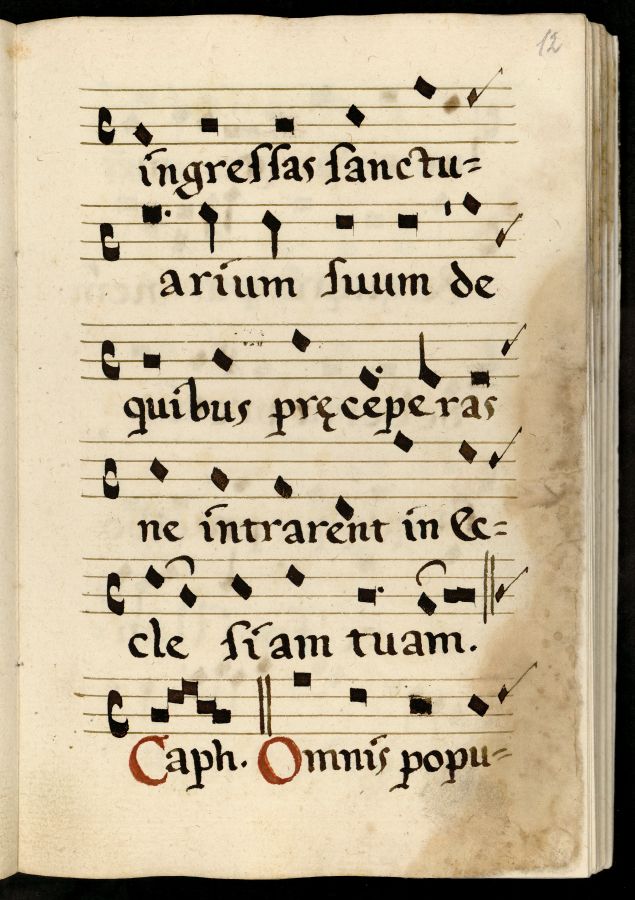 12
ingreſſas ſanctu=
arium ſuum de
quibus pręceperas
ne intrarent in Ec=
cle ſiam tuam.
Caph. Omnis popu=